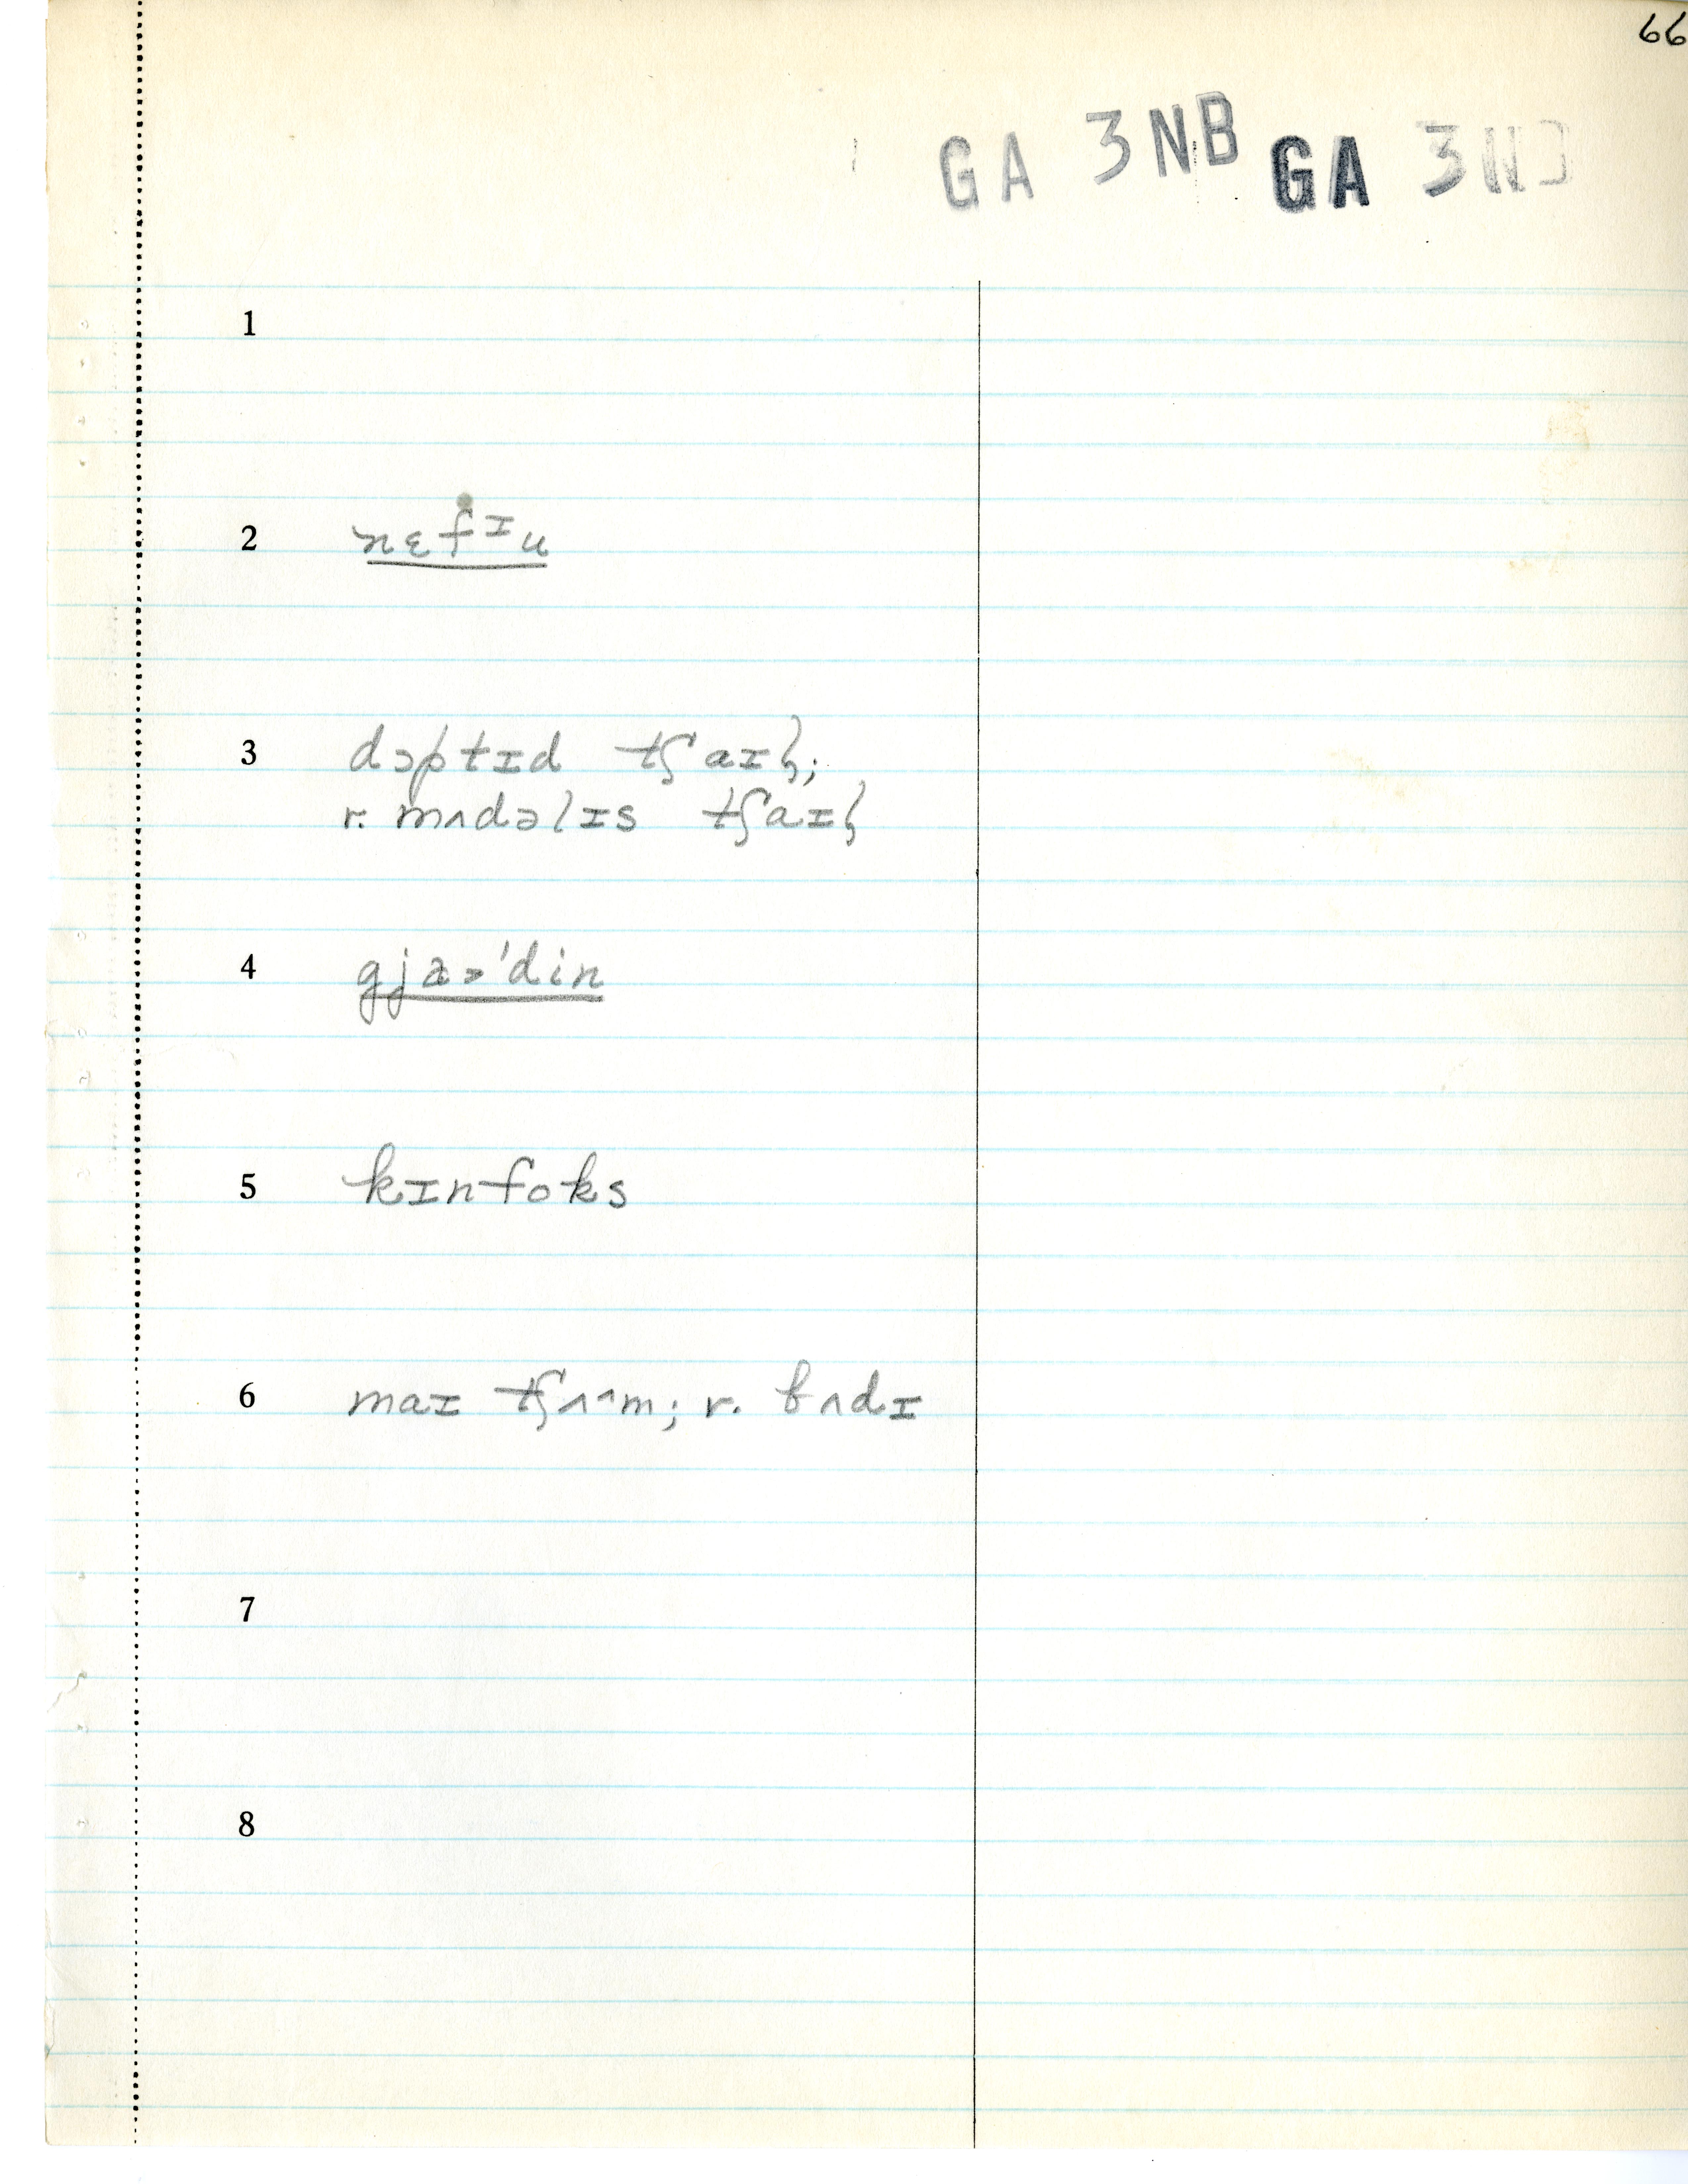 66
GA 3NB GA 3N
1
2 nɛfᶦu
3 dɔptɪd tʃaɪɫ;
r. mʌdəlɪs tʃaɪɫ
4 gjaɚ'din
5 kɪnfoks
6 maɪ tʃʌ^m; r. bʌdɪ
7
8